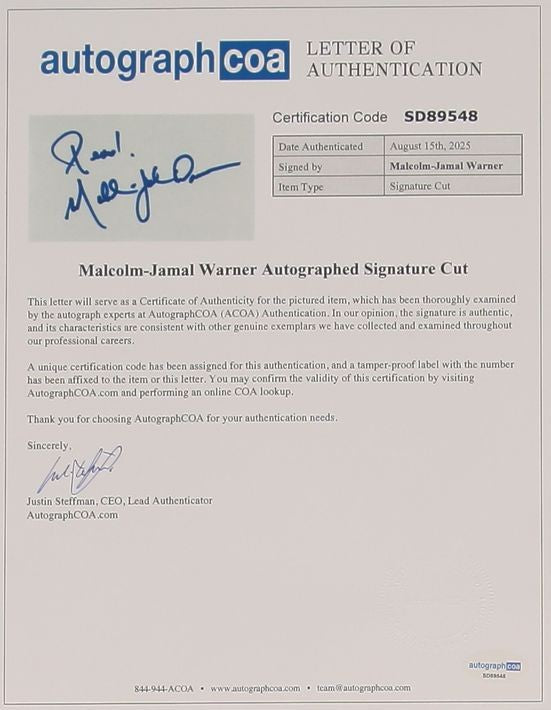 autographcoa
LETTER OF
AUTHENTICATION
Certification Code SD89548
Date Authenticated August 15th, 2025
Signed by Malcolm-Jamal Warner
Item Type Signature Cut
Read!
Malcolm-Jamal Warner Autographed Signature Cut
This letter will serve as a Certificate of Authenticity for the pictured item, which has been thoroughly examined
by the autograph experts at AutographCOA (ACOA) Authentication. In our opinion, the signature is authentic,
and its characteristics are consistent with other genuine exemplars we have collected and examined throughout
our professional careers.
A unique certification code has been assigned for this authentication, and a tamper-proof label with the number
has been affixed to the item or this letter. You may confirm the validity of this certification by visiting
AutographCOA.com and performing an online COA lookup.
Thank you for choosing AutographCOA for your authentication needs.
Sincerely,
Justin Steffman, CEO, Lead Authenticator
AutographCOA.com
autographcoa
SD89548
844-944-ACOA • www.autographcoa.com • team@autographcoa.com